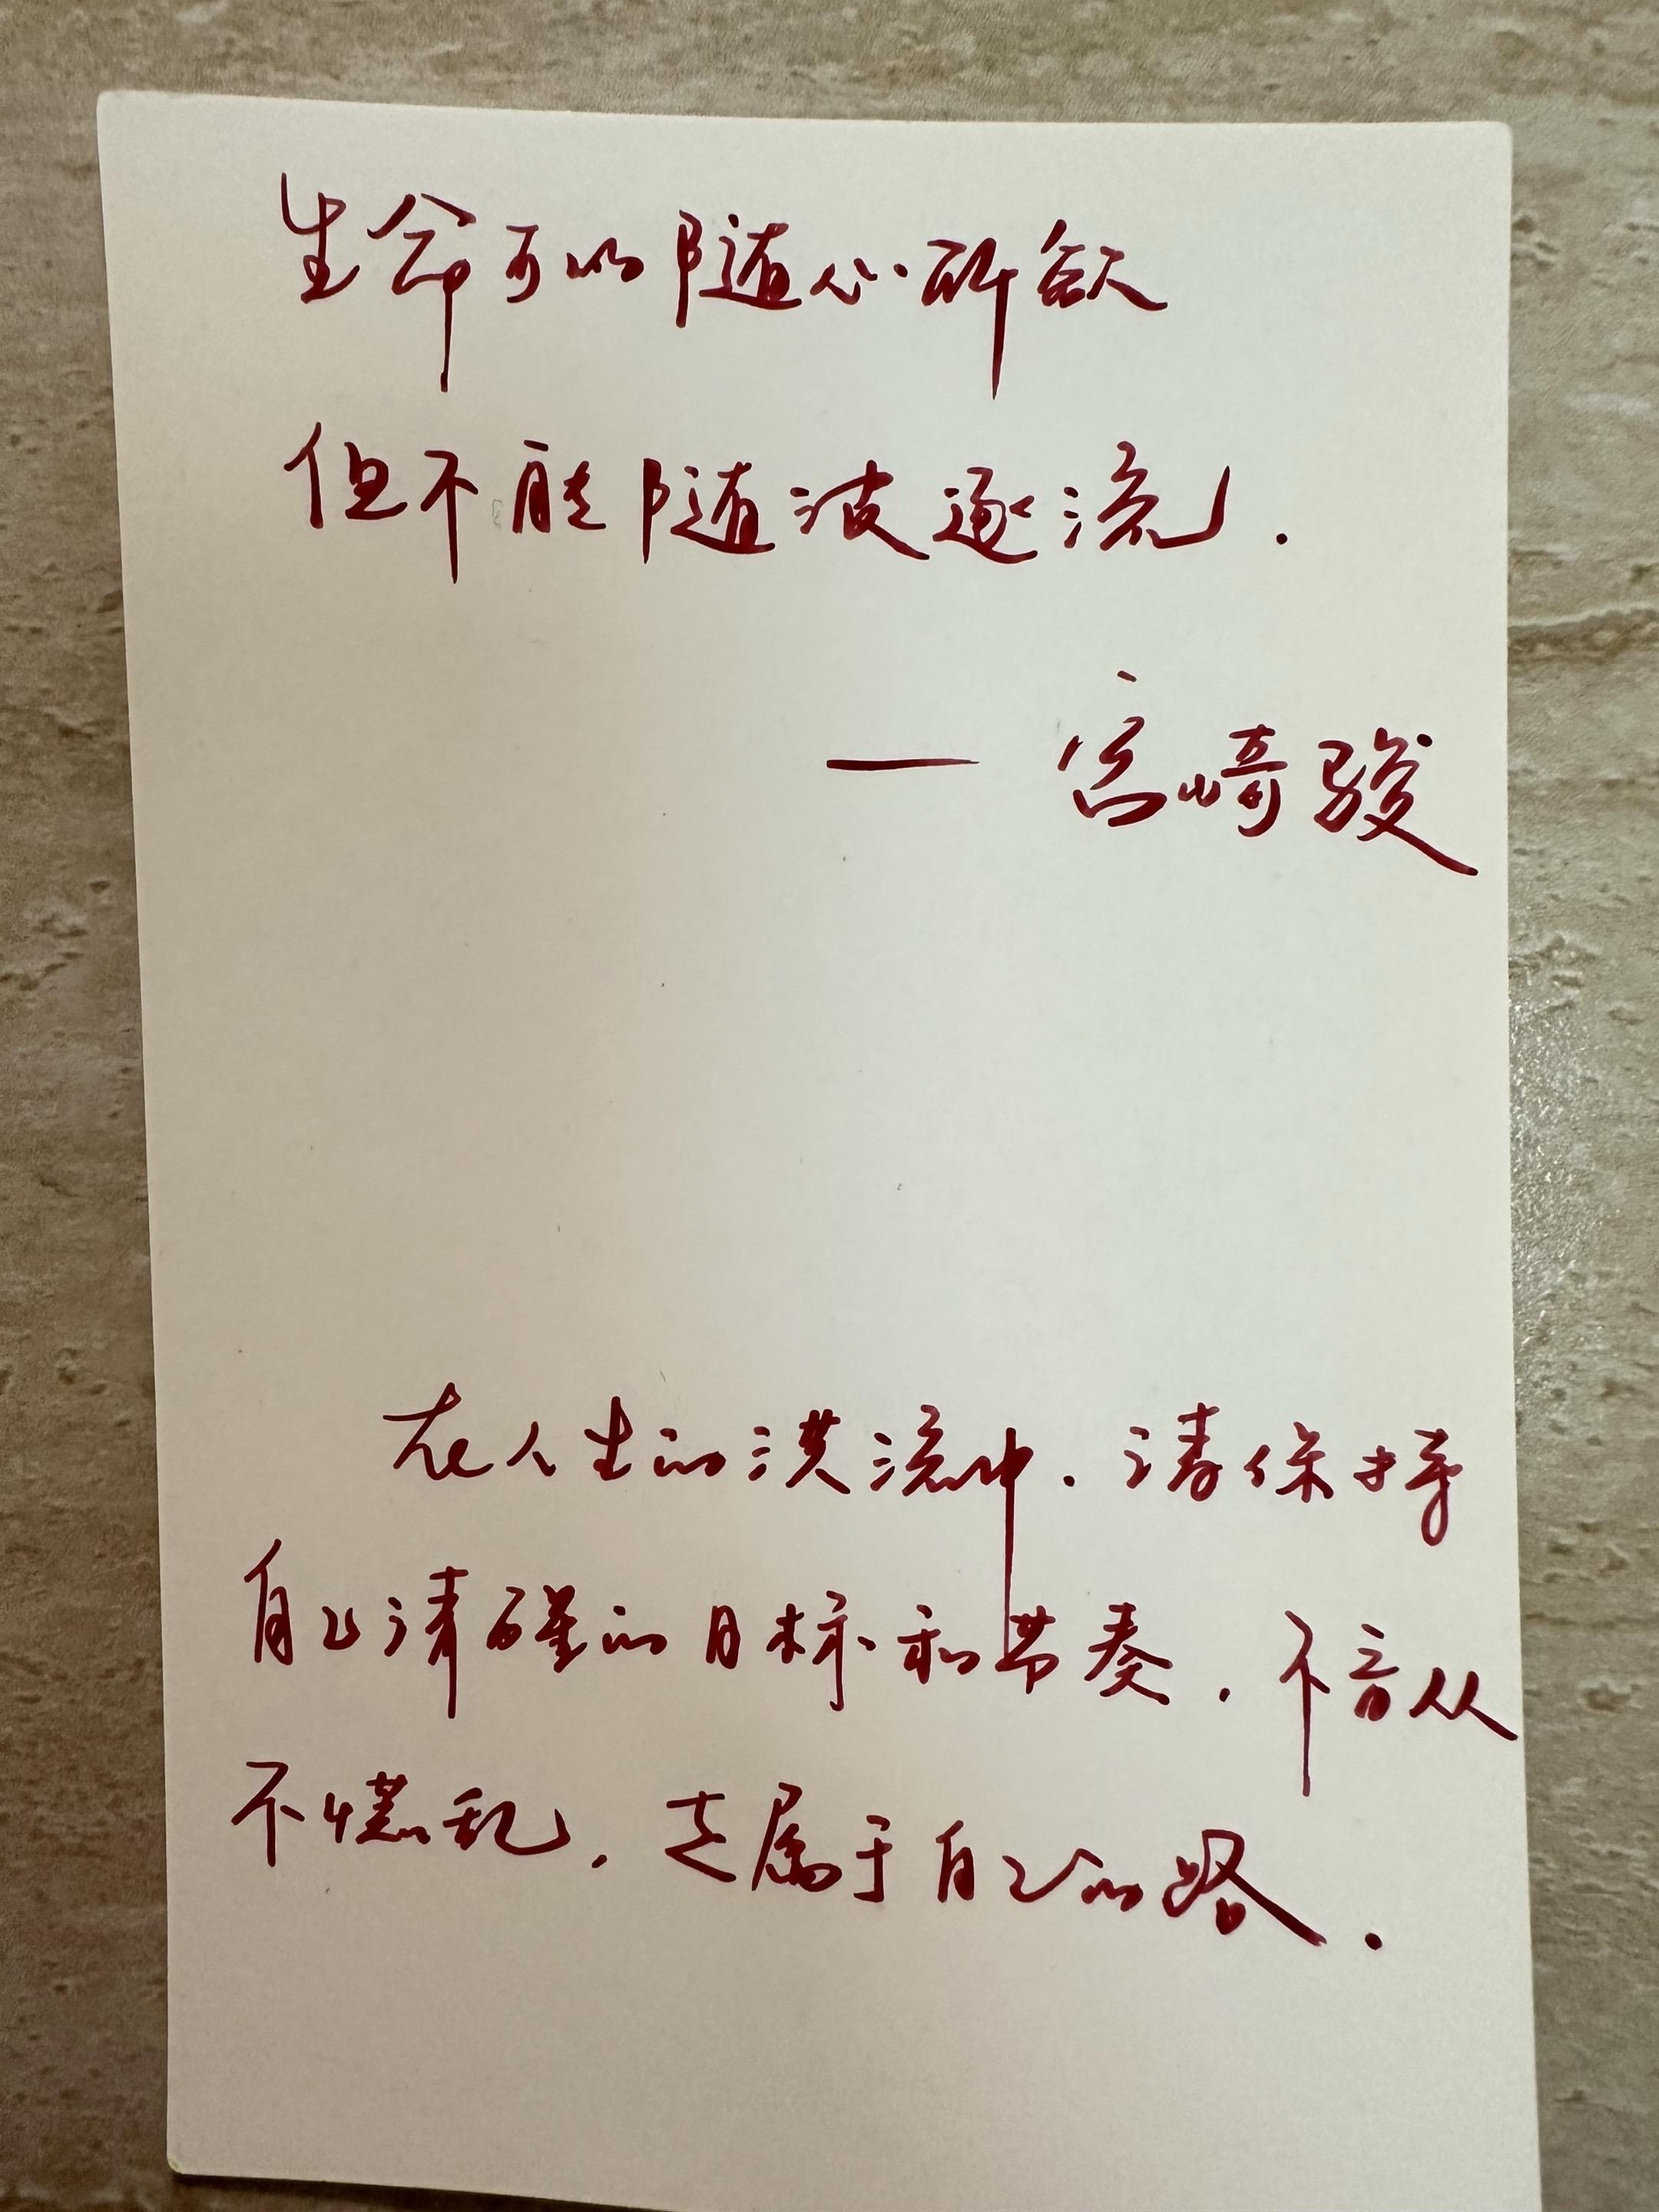 生命可以随心所欲
但不能随波逐流.
— 宫崎骏
在人生的洪流中.请保持
自己清醒的目标和节奏.不盲从
不慌乱.走属于自己的路.